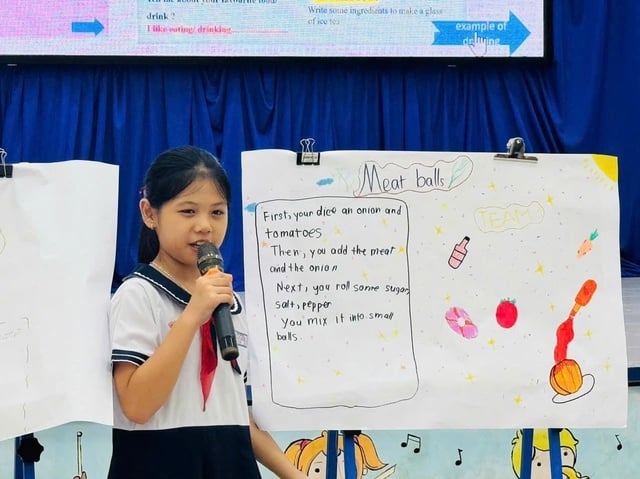 Tell me about your favourite food/
drink ?
I like eating/ drinking
Write some ingredients to make a glass
of ice tea
example of
drinking
Meat balls
First, your dice an onion and
tomatoes
Then, you add the meat
and the onion
Next, you roll some sugar,
salt, pepper
You mix it into small
balls.
TEAM